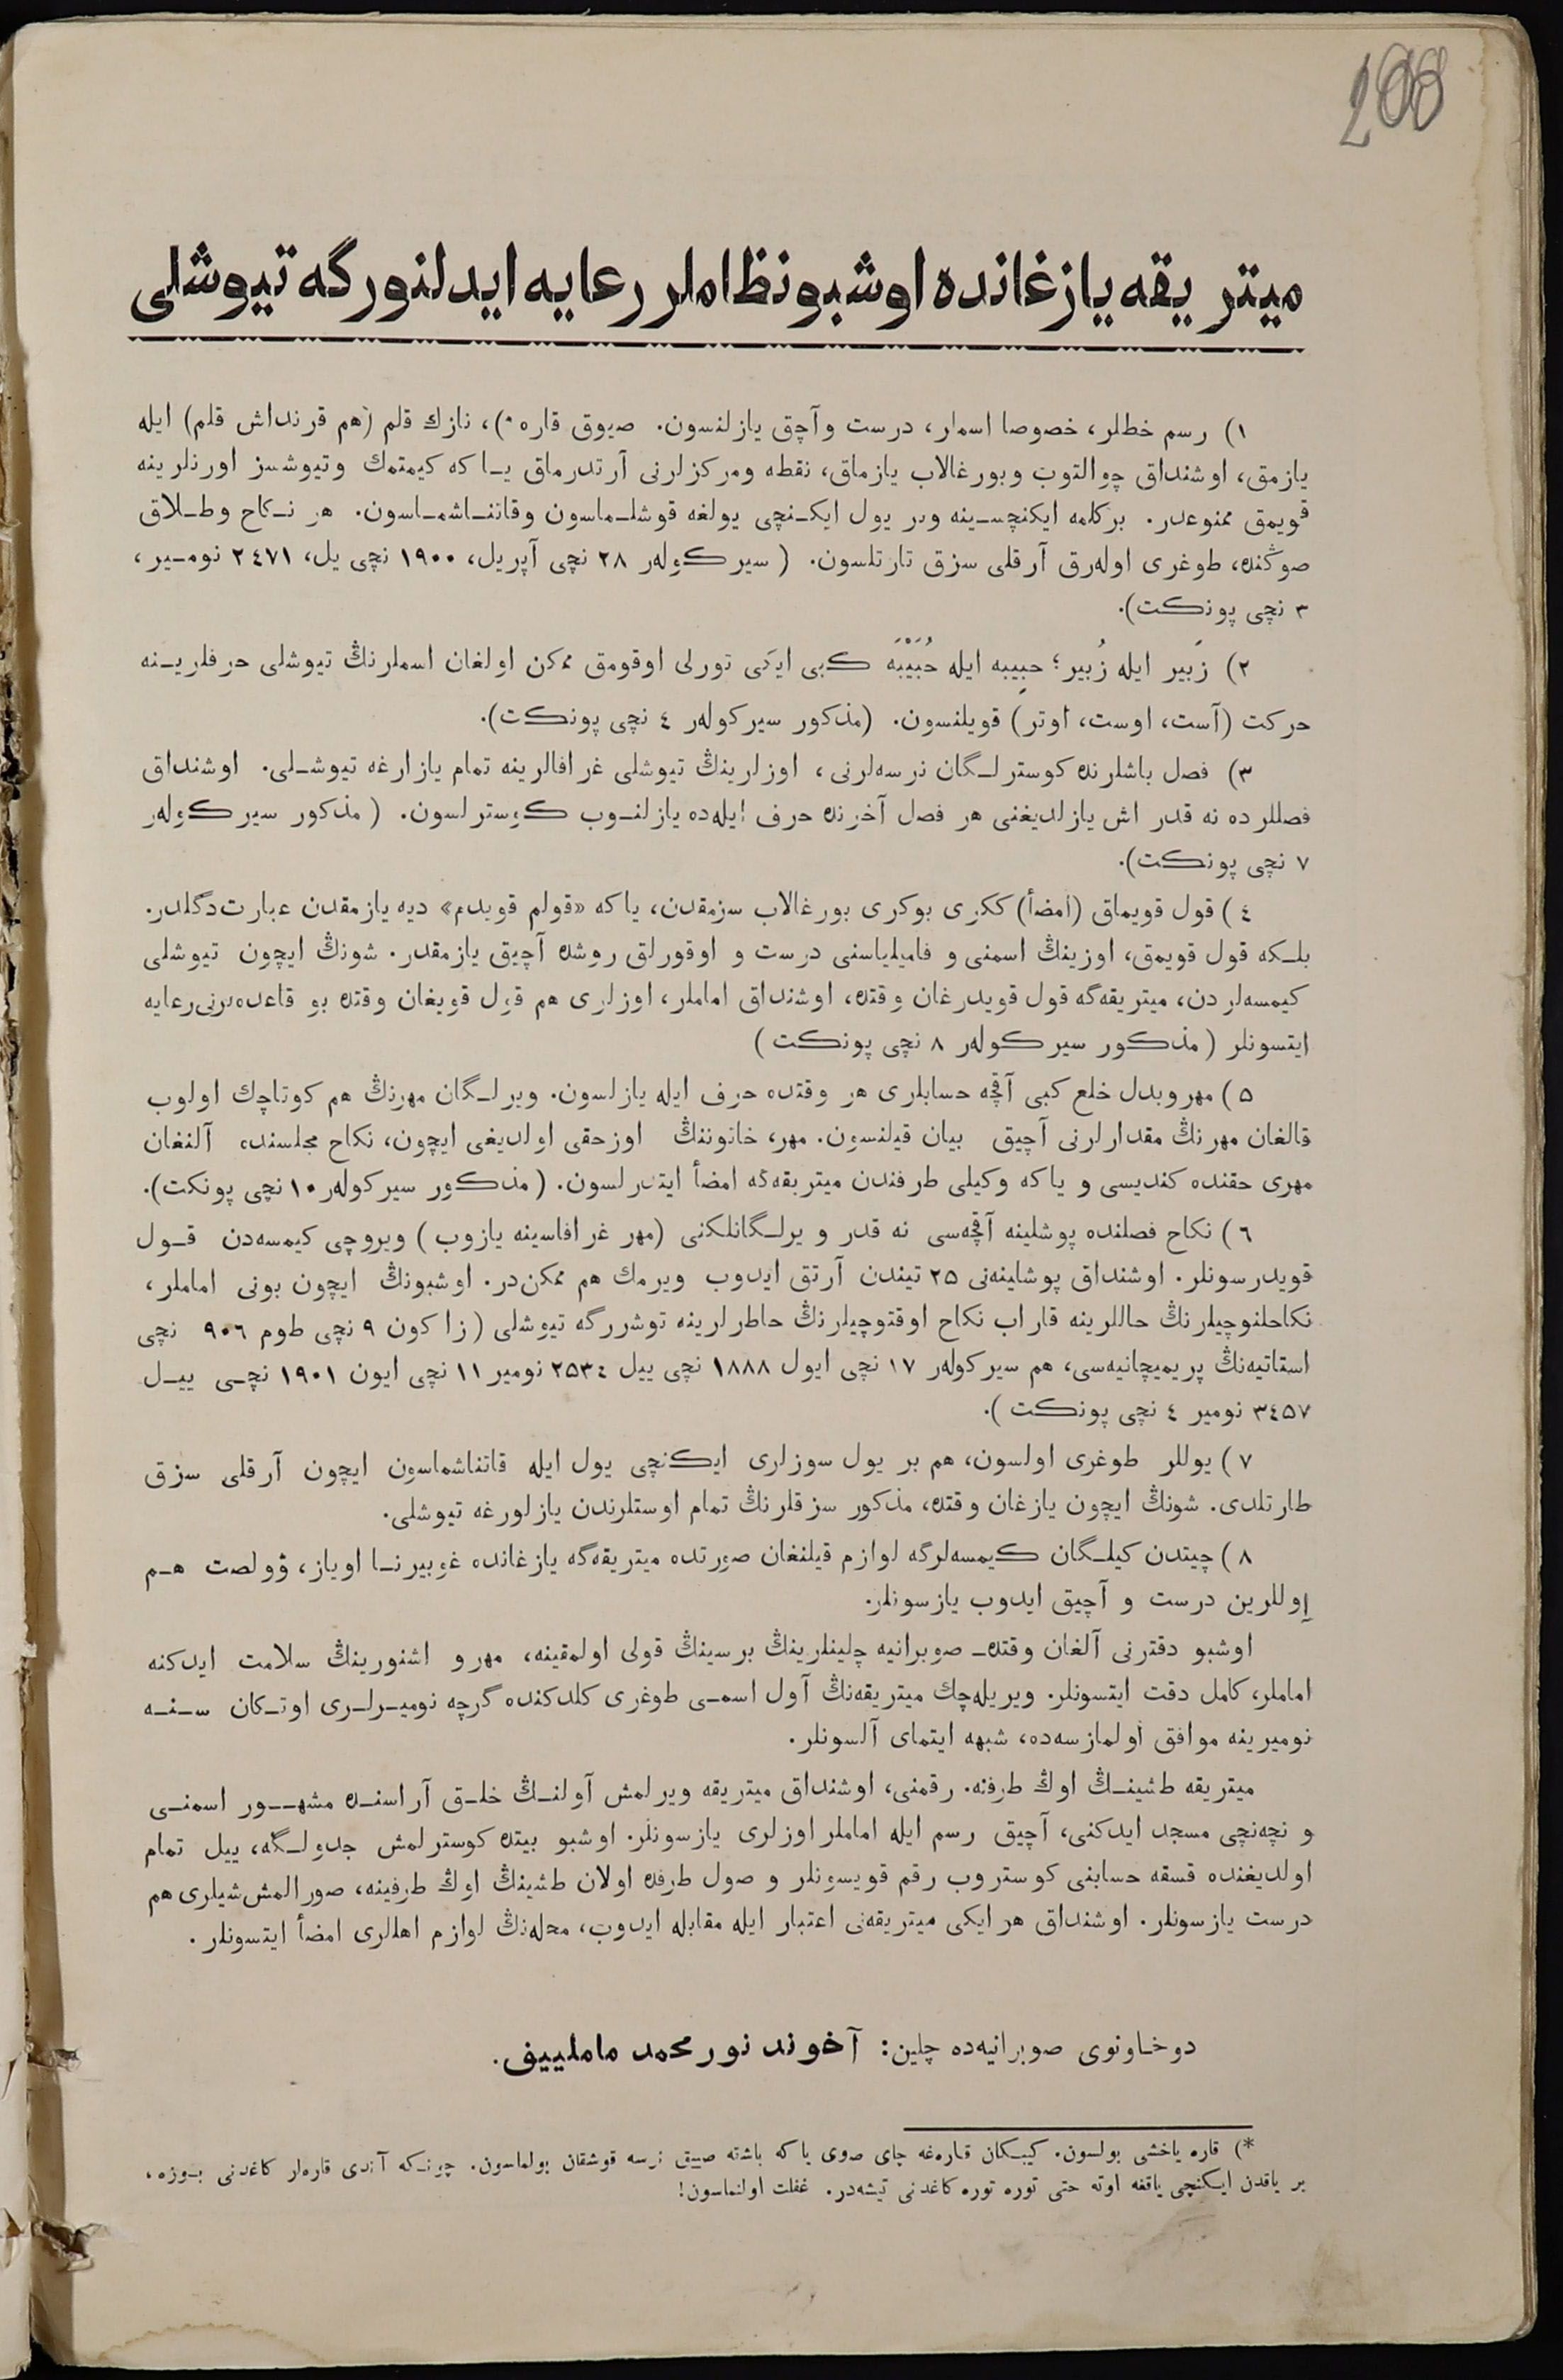 208
ميتريقه يازغانده اوشبو نظاملر رعايه ايدلنورگه تيوشلی
۱) رسم خطلر، خصوصا اسملر، درست وآچق يازلنسون. صيوق قاره *)، نازك قلم (هم قرنداش قلم) ايله
يازمق، اوشنداق چوالتوب وبورغالاب يازماق، نقطه ومركزلرنی آرتدرماق يـا كه كيمتمك وتيوشسز اورنلرينه
قويمق ممنوعدر. بركلمه ايكنچسـينه وبر يول ايكـنچی يولغه قوشلـماسون وقاتنـاشمـاسون. هر نـكاح وطـلاق
صوڭنده، طوغری اولەرق آرقلی سزق تارتلسون. (سيركولەر ۲۸ نچی آپريل، ۱۹۰۰ نچی يل، ۲٤۷۱ نومـير،
۳ نچی پونكت).
۲) زَبير ايله زُبير؛ حبِيبه ايله حُبَيْبَه كبی ايكی تورلی اوقومق ممكن اولغان اسملرنڭ تيوشلی حرفلريـنه
حركت (آست، اوست، اوتر) قويلنسون. (مذكور سيركولەر ٤ نچی پونكت).
۳) فصل باشلرنده كوسترلـگان نرسەلرنی، اوزلرينڭ تيوشلی غرافالرينه تمام يازارغه تيوشـلی. اوشنداق
فصللرده نه قدر اش يازلديغنی هر فصل آخرنده حرف ايلەده يازلنـوب كوسترلسون. (مذكور سيركولەر
۷ نچی پونكت).
٤) قول قويماق (امضأ) ككری بوكری بورغالاب سزمقدن، ياكه «قولم قويدم» ديه يازمقدن عبارت دگلدر.
بلـكه قول قويمق، اوزينڭ اسمنی و فاميلياسنی درست و اوقورلق روشده آچيق يازمقدر. شونڭ ايچون تيوشلی
كيمسەلردن، ميتريقەگه قول قويدرغان وقتده، اوشنداق اماملر، اوزلری هم قول قويغان وقتده بو قاعدەلرنی رعايه
ايتسونلر (مذكور سيركولەر ۸ نچی پونكت)
۵) مهر وبدل خلع كبی آقچه حسابلری هر وقتده حرف ايله يازلسون. ويرلـگان مهرنڭ هم كوتاچك اولوب
قالغان مهرنڭ مقدارلرنی آچيق بيان قيلنسون. مهر، خاتوننڭ اوز حقی اولديغی ايچون، نكاح مجلسنده آلنغان
مهری حقنده كنديسی و ياكه وكيلی طرفندن ميتريقەگه امضأ ايتدرلسون. (مذكور سيركولەر ۱۰ نچی پونكت).
٦) نكاح فصلنده پوشلينه آقچەسی نه قدر ويرلـگانلكنی (مهر غرافاسينه يازوب) ويروچی كيمسەدن قـول
قويدرسونلر. اوشنداق پوشلينەنی ۲۵ تيندن آرتق ايدوب ويرمك هم ممكن در. اوشبونڭ ايچون بونی اماملر،
نكاحلنوچيلرنڭ حاللرينه قاراب نكاح اوقتوچيلرنڭ خاطرلرينه توشررگه تيوشلی (زاكون ۹ نچی طوم ۹۰٦ نچی
استاتيەنڭ پريميچانيەسی، هم سيركولەر ۱۷ نچی ايول ۱۸۸۸ نچی ييل ۲۵۳٤ نومير ۱۱ نچی ايون ۱۹۰۱ نچـی ييـل
۳٤۵۷ نومير ٤ نچی پونكت).
۷) يوللر طوغری اولسون، هم بر يول سوزلری ايكنچی يول ايله قاتناشماسون ايچون آرقلی سزق
طارتلدی. شونڭ ايچون يازغان وقتده، مذكور سزقلرنڭ تمام اوستلرندن يازلورغه تيوشلی.
۸) چيتدن كيلـگان كيمسەلرگه لوازم قيلنغان صورتده ميتريقەگه يازغانده غوبيرنـا اوياز، ۋولصت هـم
اوللرين درست و آچيق ايدوب يازسونلر.
اوشبو دفترنی آلغان وقتدهـ صوبرانيه چلينلرينڭ برسينڭ قولی اولمقينه، مهر و اشنورينڭ سلامت ايدكنه
اماملر، كامل دقت ايتسونلر. ويريلەچك ميتريقەنڭ آول اسمـی طوغری كلدكنده گرچه نوميـرلـری اوتـكان سـنـه
نوميرينه موافق اولمازسەده، شبهه ايتمای آلسونلر.
ميتريقه طشينـڭ اوڭ طرفنه. رقمنی، اوشنداق ميتريقه ويرلمش آولنـڭ خلـق آراسنـده مشهــور اسمنـی
و نچەنچی مسجد ايدكنی، آچيق رسم ايله اماملر اوزلری يازسونلر. اوشبو بيتده كوسترلمش جدولـگه، ييل تمام
اولديغنده قسقه حسابنی كوستروب رقم قويسونلر و صول طرفده اولان طشينڭ اوڭ طرفينه، صورالمش شيلری هم
درست يازسونلر. اوشنداق هر ايكی ميتريقەنی اعتبار ايله مقابله ايدوب، محلەنڭ لوازم اهللری امضأ ايتسونلر.
دوخاونوی صوبرانيەده چلين: آخوند نور محمد ماملييف.
*) قاره ياخشی بولسون. كيبـكان قارەغه چای صوی ياكه باشقه صيق نرسه قوشقان بولماسون. چونـكه آندی قارەلر كاغدنی بـوزه،
بر ياقدن ايـكنچی ياققه اوته حتی توره توره كاغدنی تيشەدر. غفلت اولنماسون!